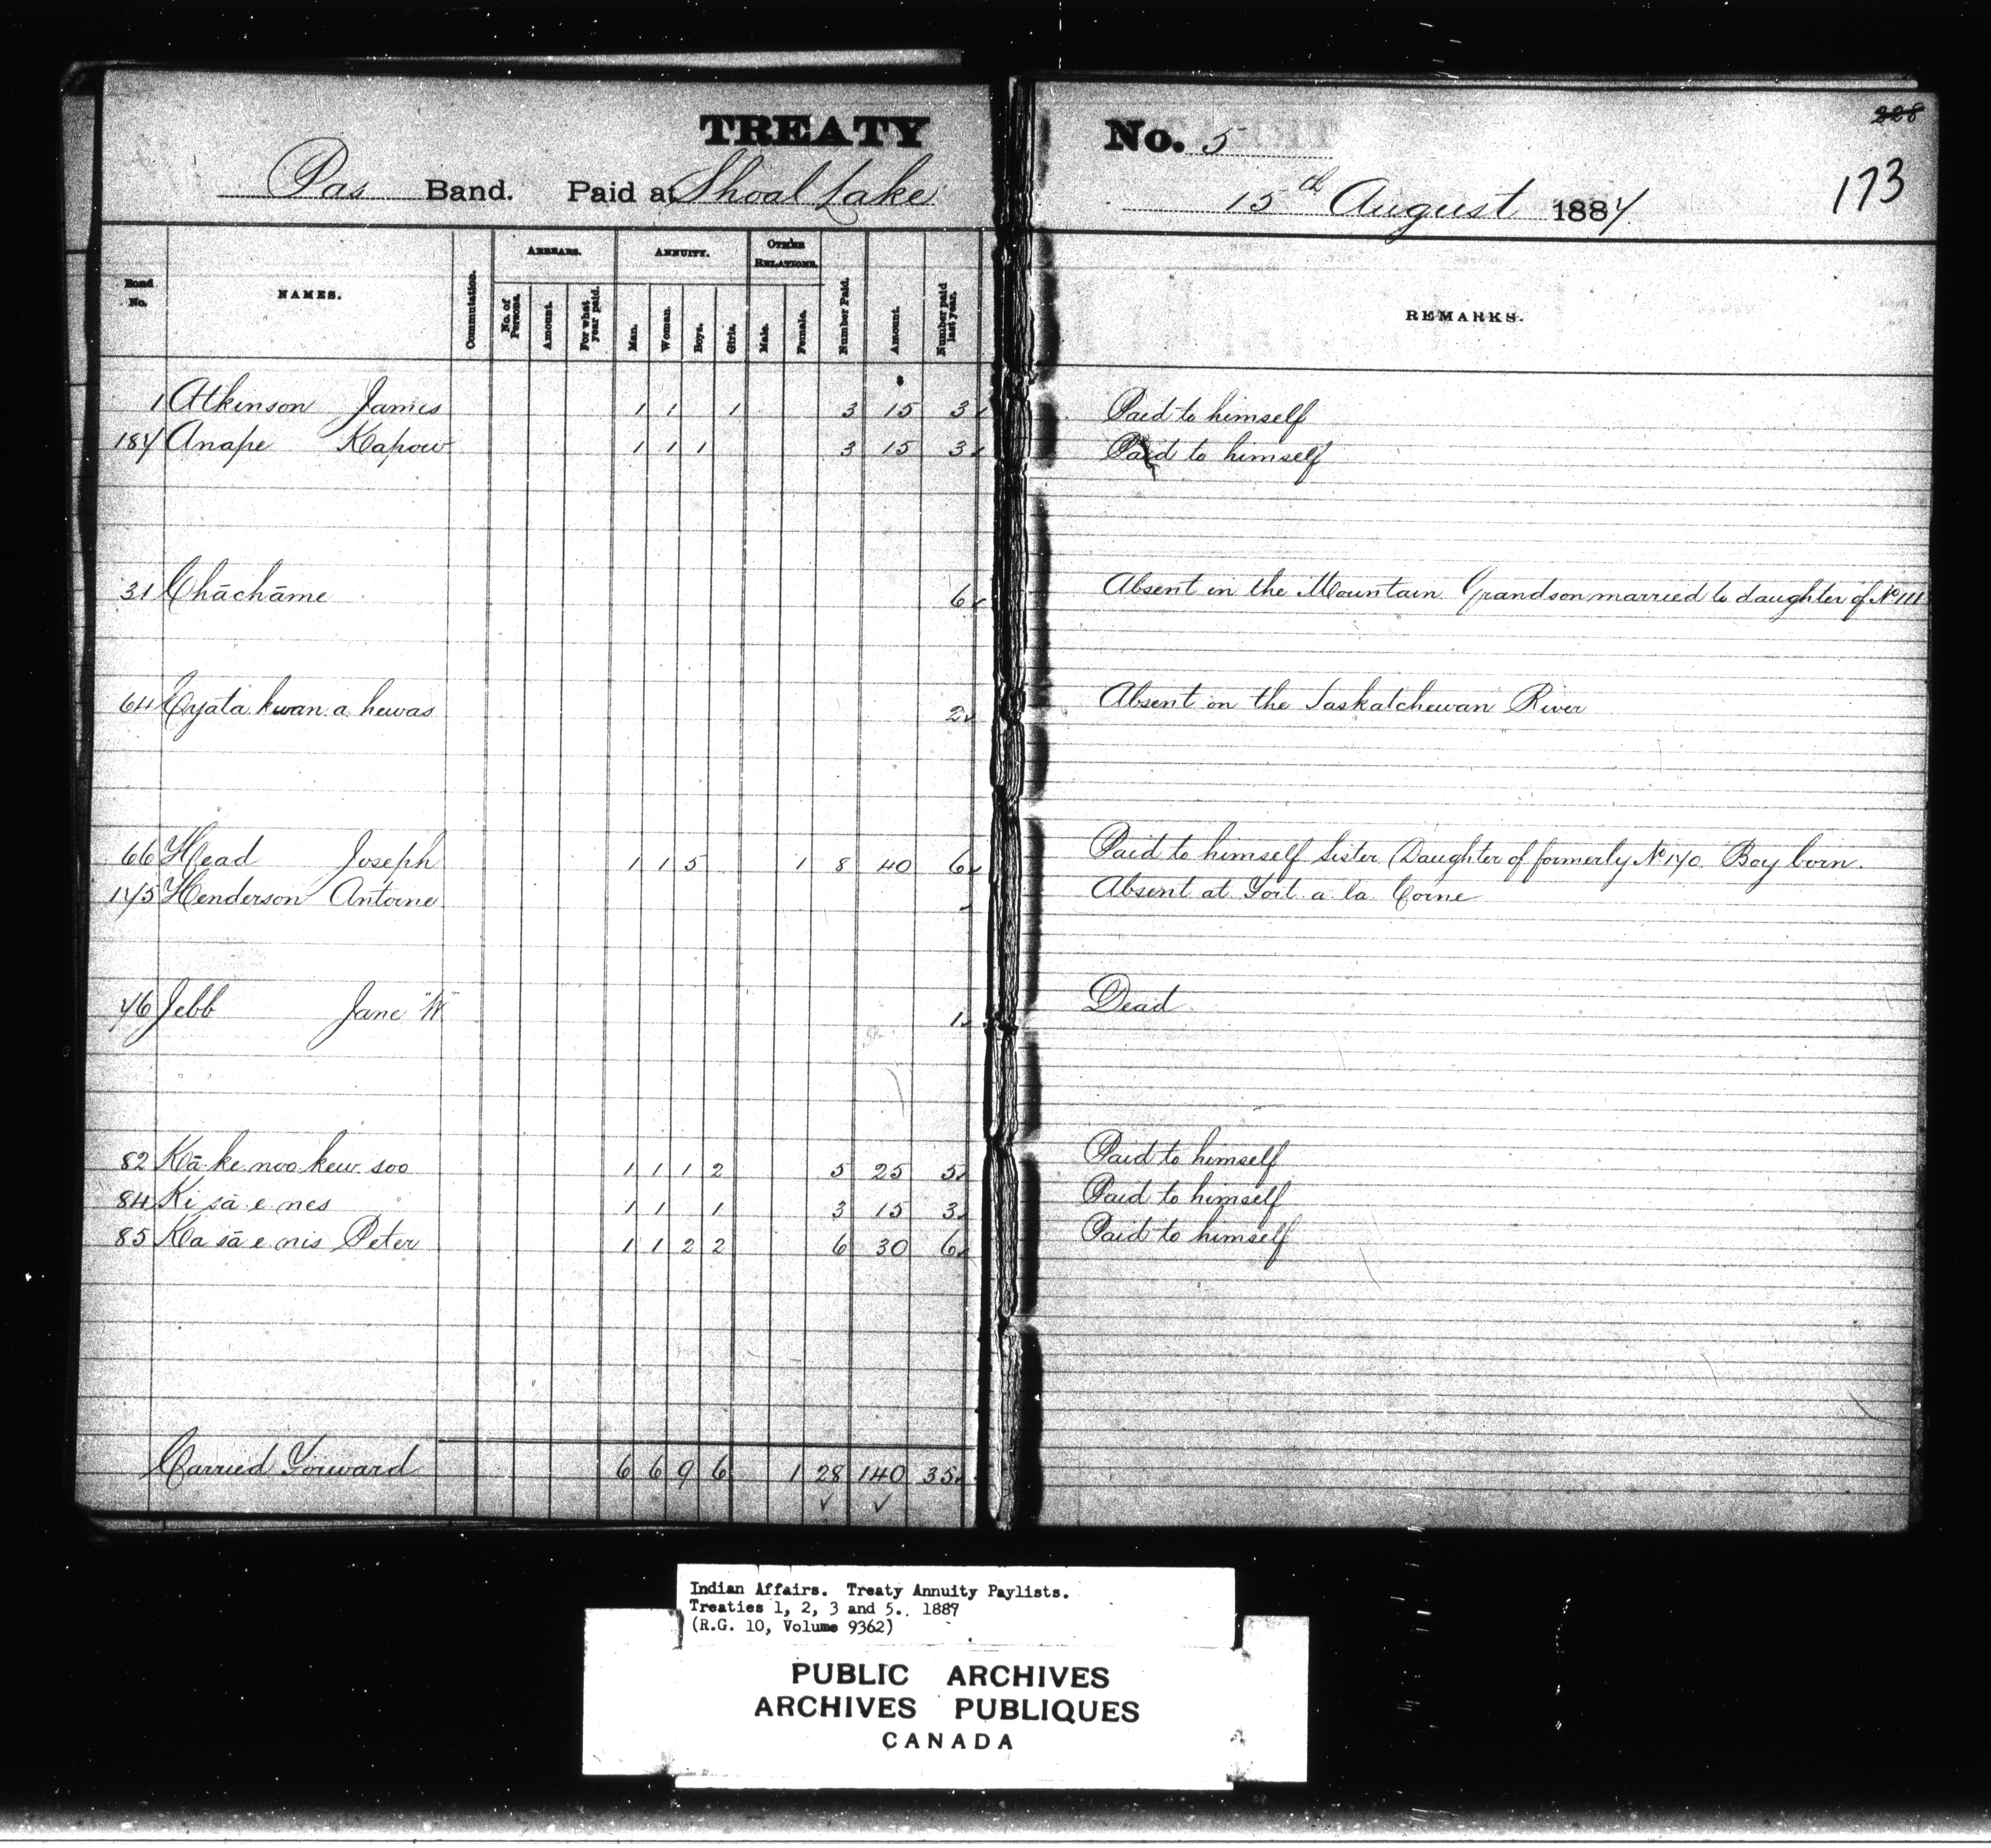 TREATY No. 5
228
173
Pas Band. Paid at Shoal Lake 15th August 1884
Band No. NAMES. Commutation. ARREARS. No. of Persons. Amount. For what year paid. ANNUITY. Man. Woman. Boys. Girls. OTHER RELATIONS. Male. Female. Number Paid. Amount. Number paid last year. REMARKS.
1 Atkinson James 1 1 1 3 15 3 Paid to himself
184 Anape Kapow 1 1 1 3 15 3 Paid to himself
31 Chāchāme 6 Absent in the Mountain Grandson married to daughter of No 111
64 Eyata kwan a hewas 2 Absent on the Saskatchewan River
66 Head Joseph 1 1 5 1 8 40 6 Paid to himself Sister (Daughter of formerly No 140 Boy born.
145 Henderson Antoine Absent at Fort a la Corne
46 Jebb Jane "W" 1 Dead
82 Kā ke noo kew soo 1 1 1 2 5 25 5 Paid to himself
84 Ki sā e nes 1 1 1 3 15 3 Paid to himself
85 Ka sā e nis Peter 1 1 2 2 6 30 6 Paid to himself
Carried Forward 6 6 9 6 1 28 140 35
Indian Affairs. Treaty Annuity Paylists.
Treaties 1, 2, 3 and 5. 1884
(R.G. 10, Volume 9362)
PUBLIC ARCHIVES
ARCHIVES PUBLIQUES
CANADA